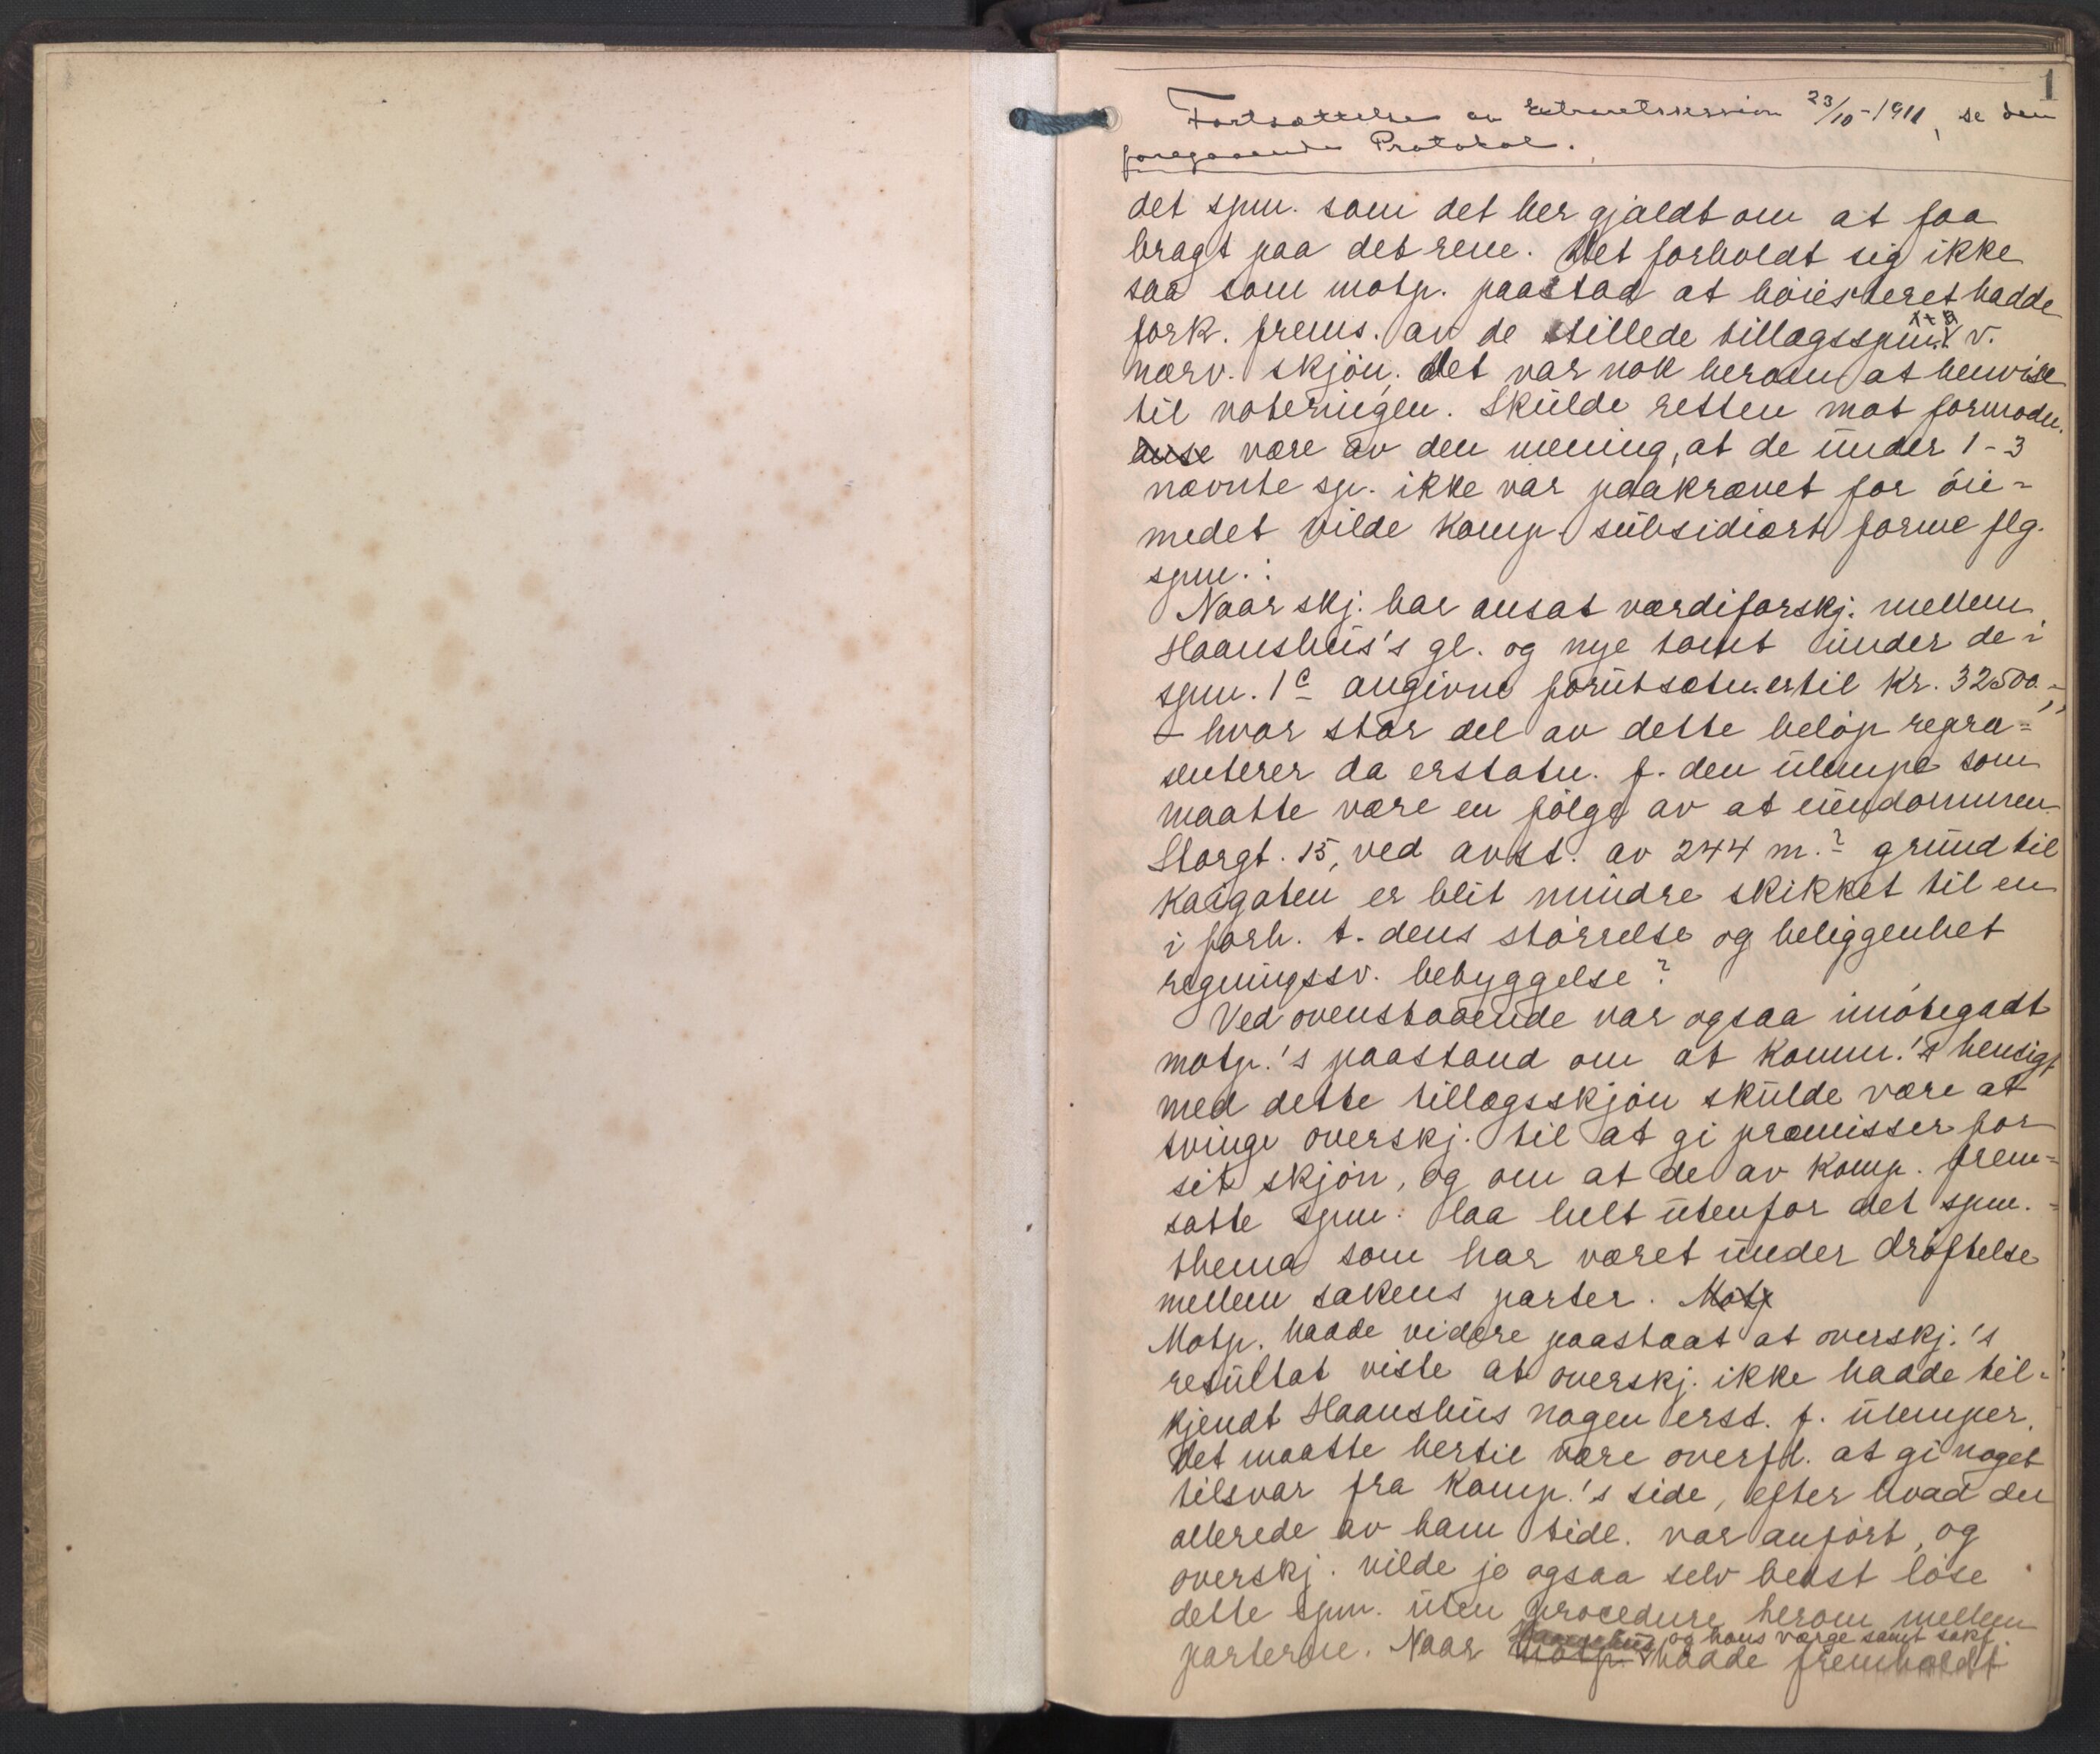 1
Fortsættelse av Extraretssession 23/10-1911, se den
foregaaende Protokol.
det spm. som det her gjaldt om at faa
bragt paa det rene. Det forholdt sig ikke
saa som motp. paastod at höiesteret hadde
fork. frems. av de stillede tillægsspm. v.
nærv. skjön. Det var nok herom at henvise
til voteringen. Skulde retten mot formodn.
være av den mening, at de under 1-3
nævnte sp. ikke var paakrævet for öie-
medet vilde komp. subsidiært forme flg.
spm.:
Naar skj. har ansat værdiforskj. mellem
Haanshus's gl. og nye tomt under de i
spm. 1c angivne forutsætn. er til Kr. 32500.-,
- hvor stor del av dette belöp repræ-
senterer da erstatn. f. den ulempe som
maatte være en fölge av at eiendommen
Storgt. 15, ved avst. av 244 m.2 grund til
Kaigaten er blit mindre skikket til en
i forh. t. dens störrelse og beliggenhet
regningssv. bebyggelse?
Ved ovenstaaende var ogsaa imötegaat
motp.'s paastand om at komm.'s hensigt
med dette tillægsskjön skulde være at
tvinge overskj. til at gi præmisser for
sit skjön, og om at de av komp. frem-
satte spm. laa helt utenfor det spm.-
thema som har været under dröftelse
mellem sakens parter. Motp
Motp. hadde videre paastaat at overskj.'s
resultat viste at overskj. ikke hadde til-
kjendt Haanshus nogen erst. f. ulemper.
Det maatte hertil være overfl. at gi noget
tilsvar fra komp.'s side, efter hvad der
allerede av ham tidl. var anfört, og
overskj. vilde jo ogsaa selv bedst löse
dette spm. uten procedure herom mellem
og hans værge samt sakf.
parterne. Naar motp. hadde fremholdt